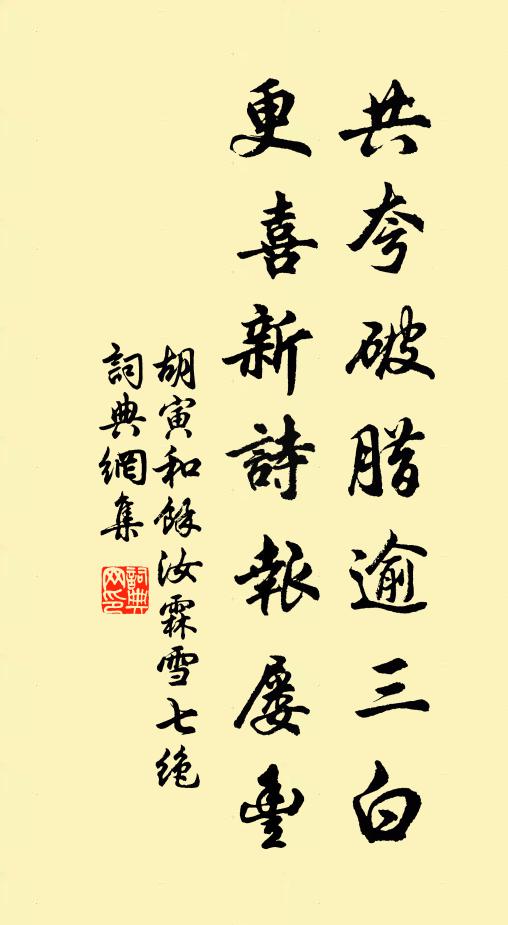 共夸破腊逾三白
更喜新詩報屡豐
胡寅和餘汝霖雪七绝
詞典網集
詞典网印